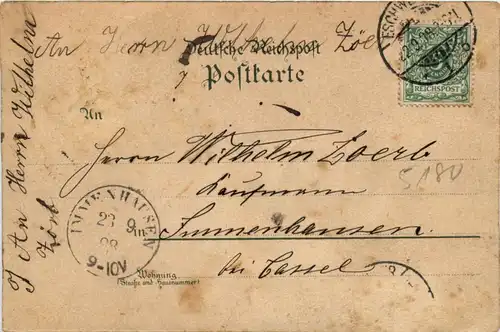 An Herrn Wilhelm Zörb
Deutsche Reichspost
Postkarte
ESCHWE
22.9.98
REICHSPOST
An
Herrn Wilhelm Zoerb
Kaufmann
in Immenhausen
bei Cassel
5180
IMMENHAUSEN
23 9
98
9-10V
Wohnung
(Straße und Hausnummer)
An Herrn Wilhelm
Zörb